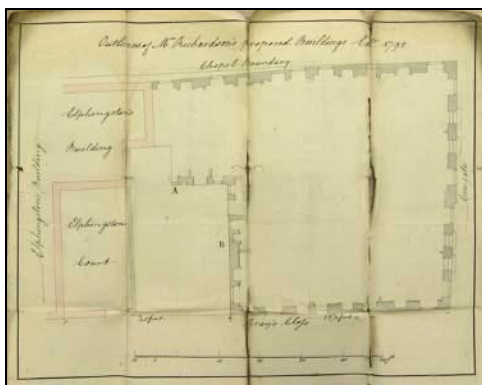 Outlines of Mr Richardson's proposed Buildings - Edr 1790
Chapel Boundary
Elphingston's
Building
Elphingston's Building
A
Elphingston
Court
B
Cowgate
Gray's Close